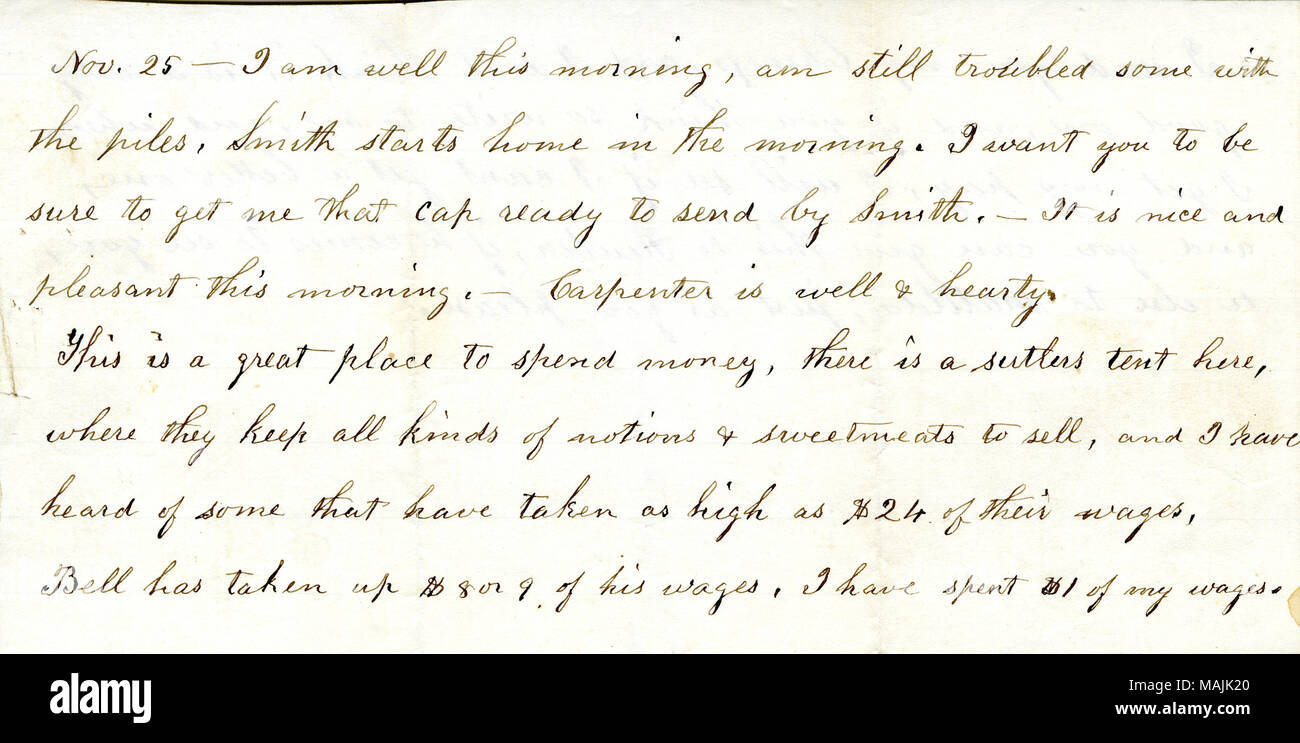 Nov. 25 — I am well this morning, am still troubled some with
the piles, Smith starts home in the morning. I want you to be
sure to get me that cap ready to send by Smith. — It is nice and
pleasant this morning. — Carpenter is well & hearty.
This is a great place to spend money, there is a sutlers tent here,
where they keep all kinds of notions & sweetmeats to sell, and I have
heard of some that have taken as high as $24 of their wages,
Bell has taken up $8 or 9 of his wages, I have spent $1 of my wages.
alamy
Image ID: MAJK20
www.alamy.com